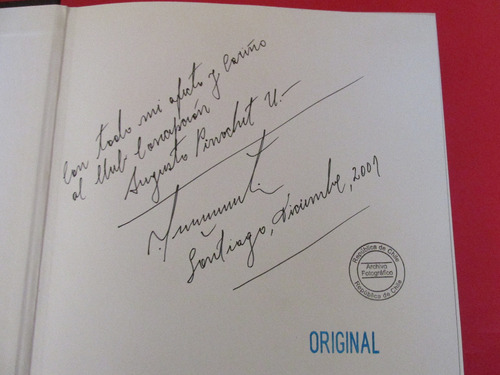 Con todo mi afecto y Cariño
al Club Concepción
Augusto Pinochet U.-
Santiago, Diciembre, 2001
República de Chile
Archivo
Fotográfico
República de Chile
ORIGINAL